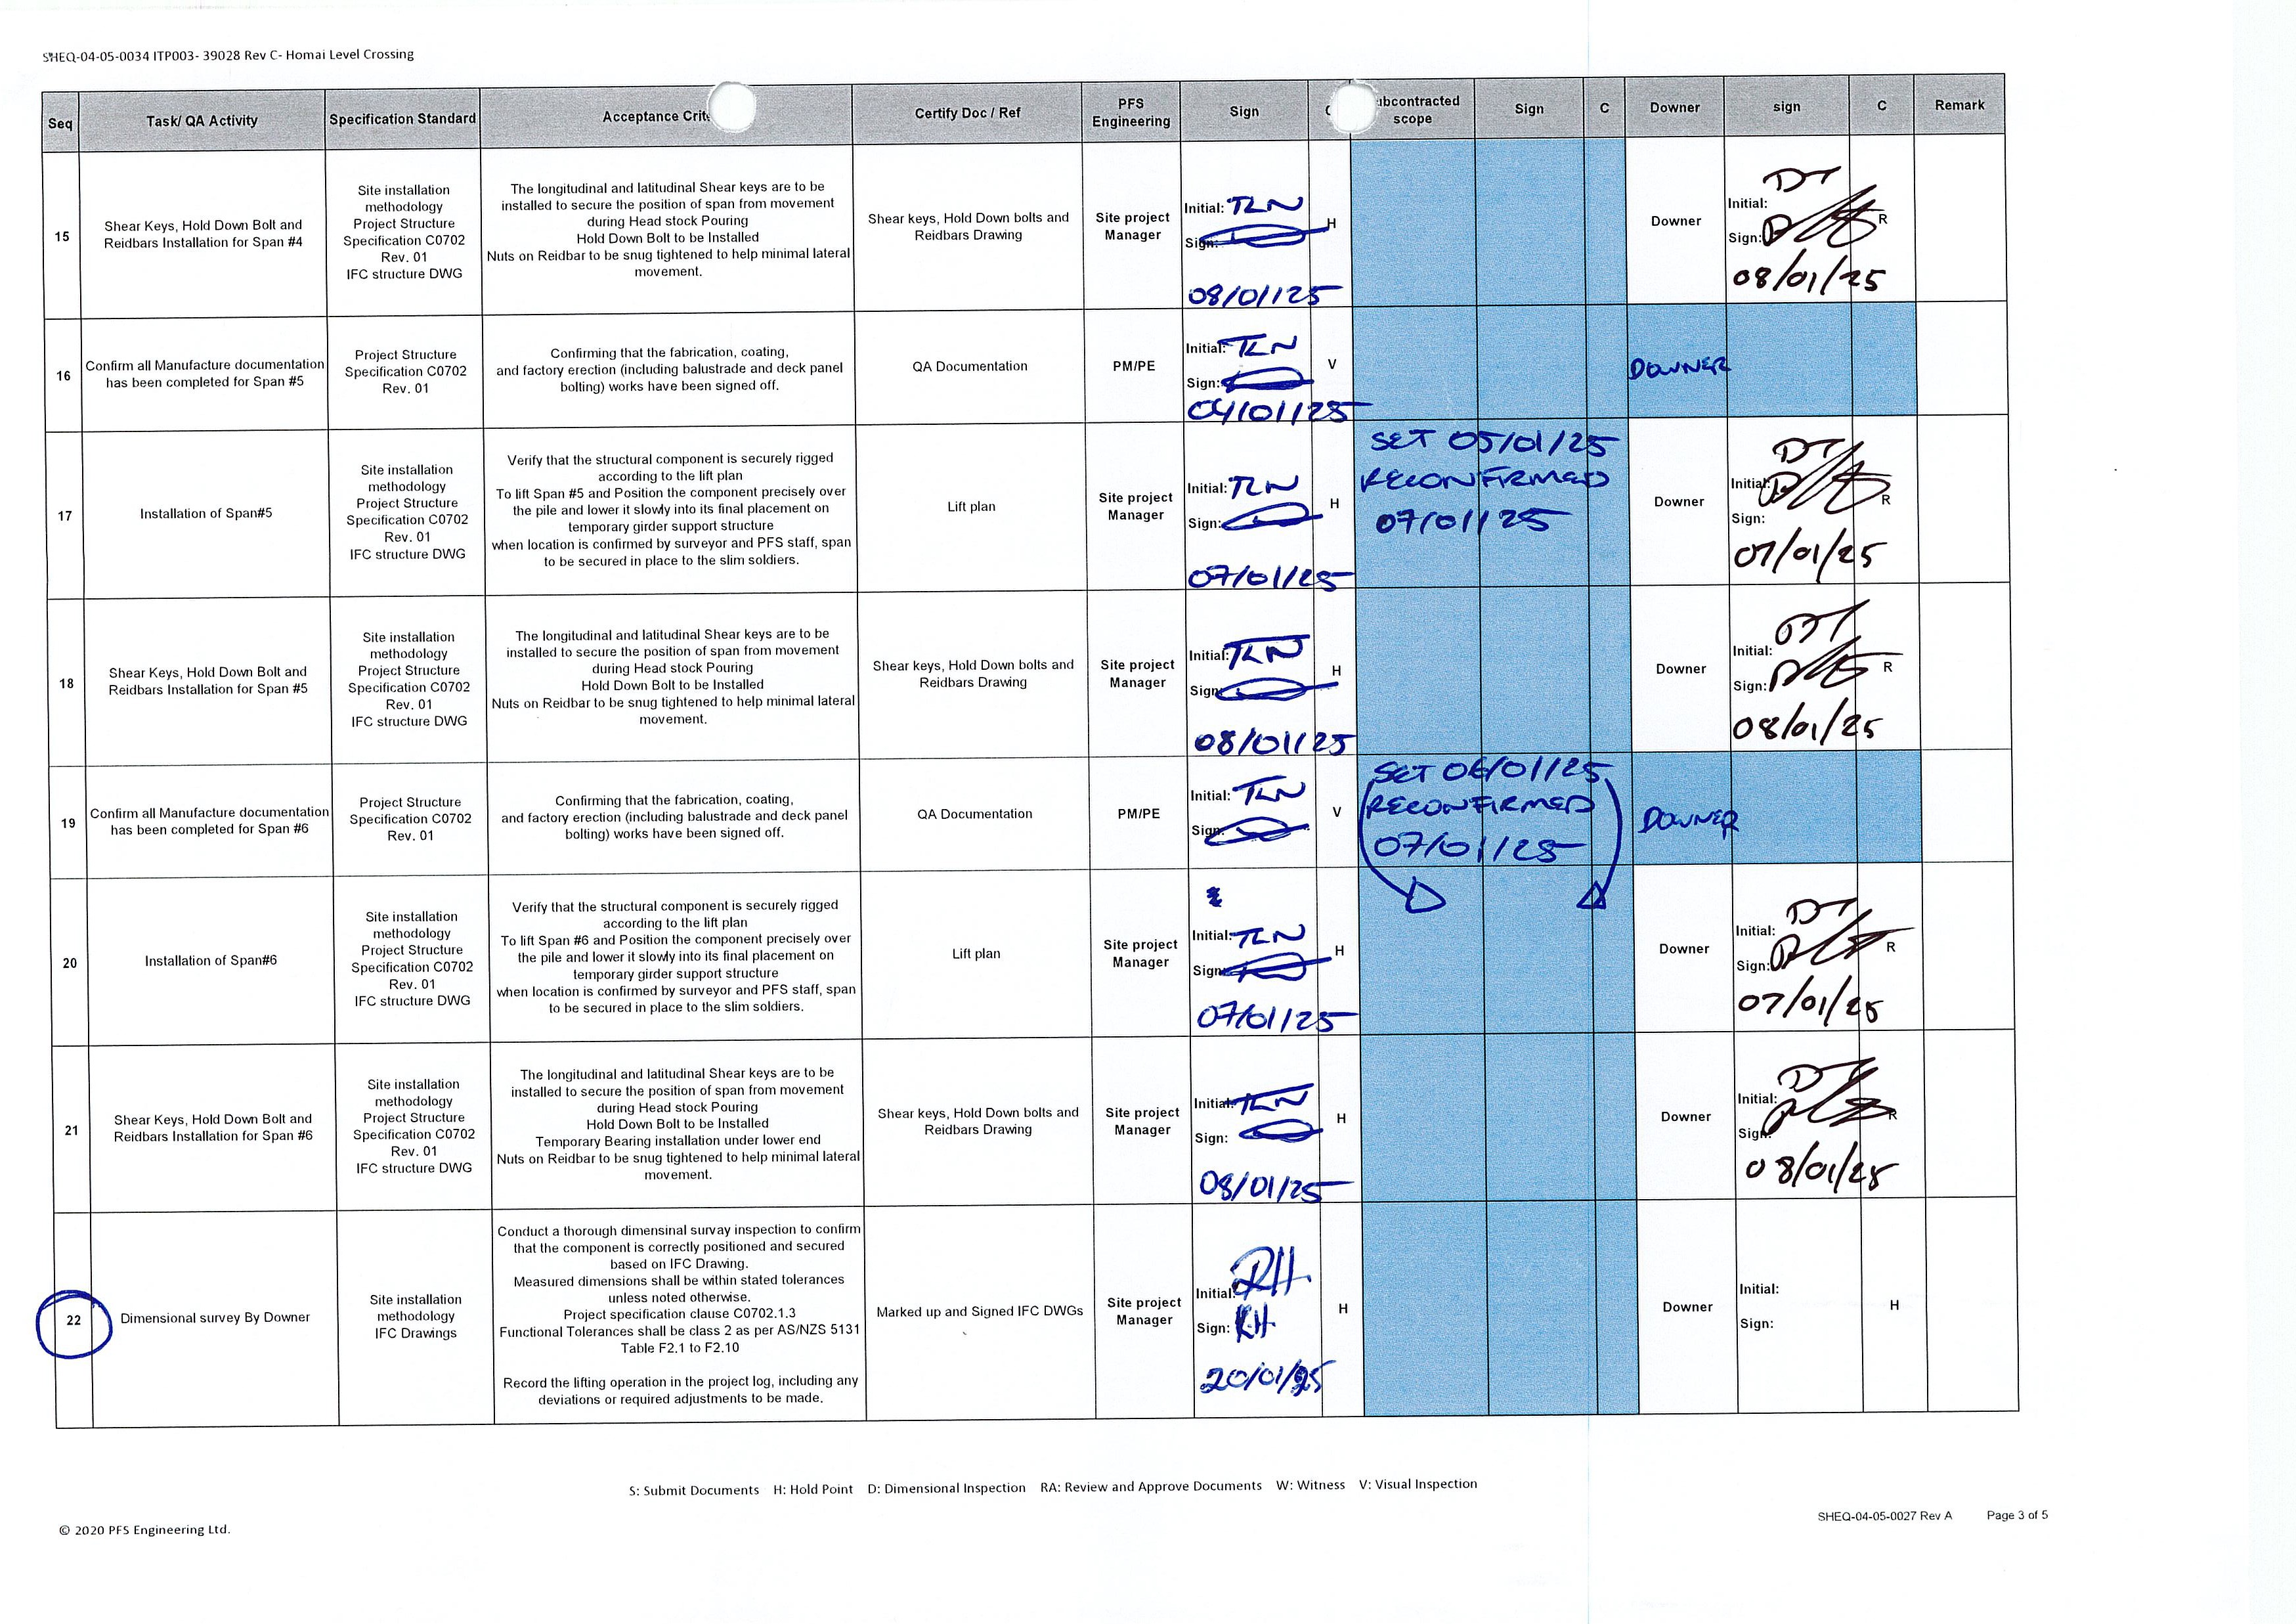 SHEQ-04-05-0034 ITP003- 39028 Rev C- Homai Level Crossing
Seq
Task/ QA Activity
Specification Standard
Acceptance Crite
Certify Doc / Ref
PFS
Engineering
Sign
C
ubcontracted
scope
Sign
C
Downer
sign
C
Remark
15
Shear Keys, Hold Down Bolt and
Reidbars Installation for Span #4
Site installation
methodology
Project Structure
Specification C0702
Rev. 01
IFC structure DWG
The longitudinal and latitudinal Shear keys are to be
installed to secure the position of span from movement
during Head stock Pouring
Hold Down Bolt to be Installed
Nuts on Reidbar to be snug tightened to help minimal lateral
movement.
Shear keys, Hold Down bolts and
Reidbars Drawing
Site project
Manager
Initial: TLN
Sign:
08/01/25
H
Downer
DT
Initial:
Sign:
08/01/25
R
16
Confirm all Manufacture documentation
has been completed for Span #5
Project Structure
Specification C0702
Rev. 01
Confirming that the fabrication, coating,
and factory erection (including balustrade and deck panel
bolting) works have been signed off.
QA Documentation
PM/PE
Initial: TLN
Sign:
04/01/25
V
DOWNER
17
Installation of Span#5
Site installation
methodology
Project Structure
Specification C0702
Rev. 01
IFC structure DWG
Verify that the structural component is securely rigged
according to the lift plan
To lift Span #5 and Position the component precisely over
the pile and lower it slowly into its final placement on
temporary girder support structure
when location is confirmed by surveyor and PFS staff, span
to be secured in place to the slim soldiers.
Lift plan
Site project
Manager
Initial: TLN
Sign:
07/01/25
H
SET 05/01/25
RECONFIRMED
07/01/25
Downer
DT
Initial:
Sign:
07/01/25
R
18
Shear Keys, Hold Down Bolt and
Reidbars Installation for Span #5
Site installation
methodology
Project Structure
Specification C0702
Rev. 01
IFC structure DWG
The longitudinal and latitudinal Shear keys are to be
installed to secure the position of span from movement
during Head stock Pouring
Hold Down Bolt to be Installed
Nuts on Reidbar to be snug tightened to help minimal lateral
movement.
Shear keys, Hold Down bolts and
Reidbars Drawing
Site project
Manager
Initial: TLN
Sign:
08/01/25
H
Downer
DT
Initial:
Sign:
08/01/25
R
19
Confirm all Manufacture documentation
has been completed for Span #6
Project Structure
Specification C0702
Rev. 01
Confirming that the fabrication, coating,
and factory erection (including balustrade and deck panel
bolting) works have been signed off.
QA Documentation
PM/PE
Initial: TLN
Sign:
V
SET 06/01/25
RECONFIRMED
07/01/25
DOWNER
20
Installation of Span#6
Site installation
methodology
Project Structure
Specification C0702
Rev. 01
IFC structure DWG
Verify that the structural component is securely rigged
according to the lift plan
To lift Span #6 and Position the component precisely over
the pile and lower it slowly into its final placement on
temporary girder support structure
when location is confirmed by surveyor and PFS staff, span
to be secured in place to the slim soldiers.
Lift plan
Site project
Manager
Initial: TLN
Sign:
07/01/25
H
Downer
DT
Initial:
Sign:
07/01/25
R
21
Shear Keys, Hold Down Bolt and
Reidbars Installation for Span #6
Site installation
methodology
Project Structure
Specification C0702
Rev. 01
IFC structure DWG
The longitudinal and latitudinal Shear keys are to be
installed to secure the position of span from movement
during Head stock Pouring
Hold Down Bolt to be Installed
Temporary Bearing installation under lower end
Nuts on Reidbar to be snug tightened to help minimal lateral
movement.
Shear keys, Hold Down bolts and
Reidbars Drawing
Site project
Manager
Initial: TLN
Sign:
08/01/25
H
Downer
DT
Initial:
Sign:
08/01/25
R
22
Dimensional survey By Downer
Site installation
methodology
IFC Drawings
Conduct a thorough dimensinal survay inspection to confirm
that the component is correctly positioned and secured
based on IFC Drawing.
Measured dimensions shall be within stated tolerances
unless noted otherwise.
Project specification clause C0702.1.3
Functional Tolerances shall be class 2 as per AS/NZS 5131
Table F2.1 to F2.10
Record the lifting operation in the project log, including any
deviations or required adjustments to be made.
Marked up and Signed IFC DWGs
Site project
Manager
Initial: RH
Sign: RH
20/01/25
H
Downer
Initial:
Sign:
H
S: Submit Documents H: Hold Point D: Dimensional Inspection RA: Review and Approve Documents W: Witness V: Visual Inspection
© 2020 PFS Engineering Ltd.
SHEQ-04-05-0027 Rev A Page 3 of 5